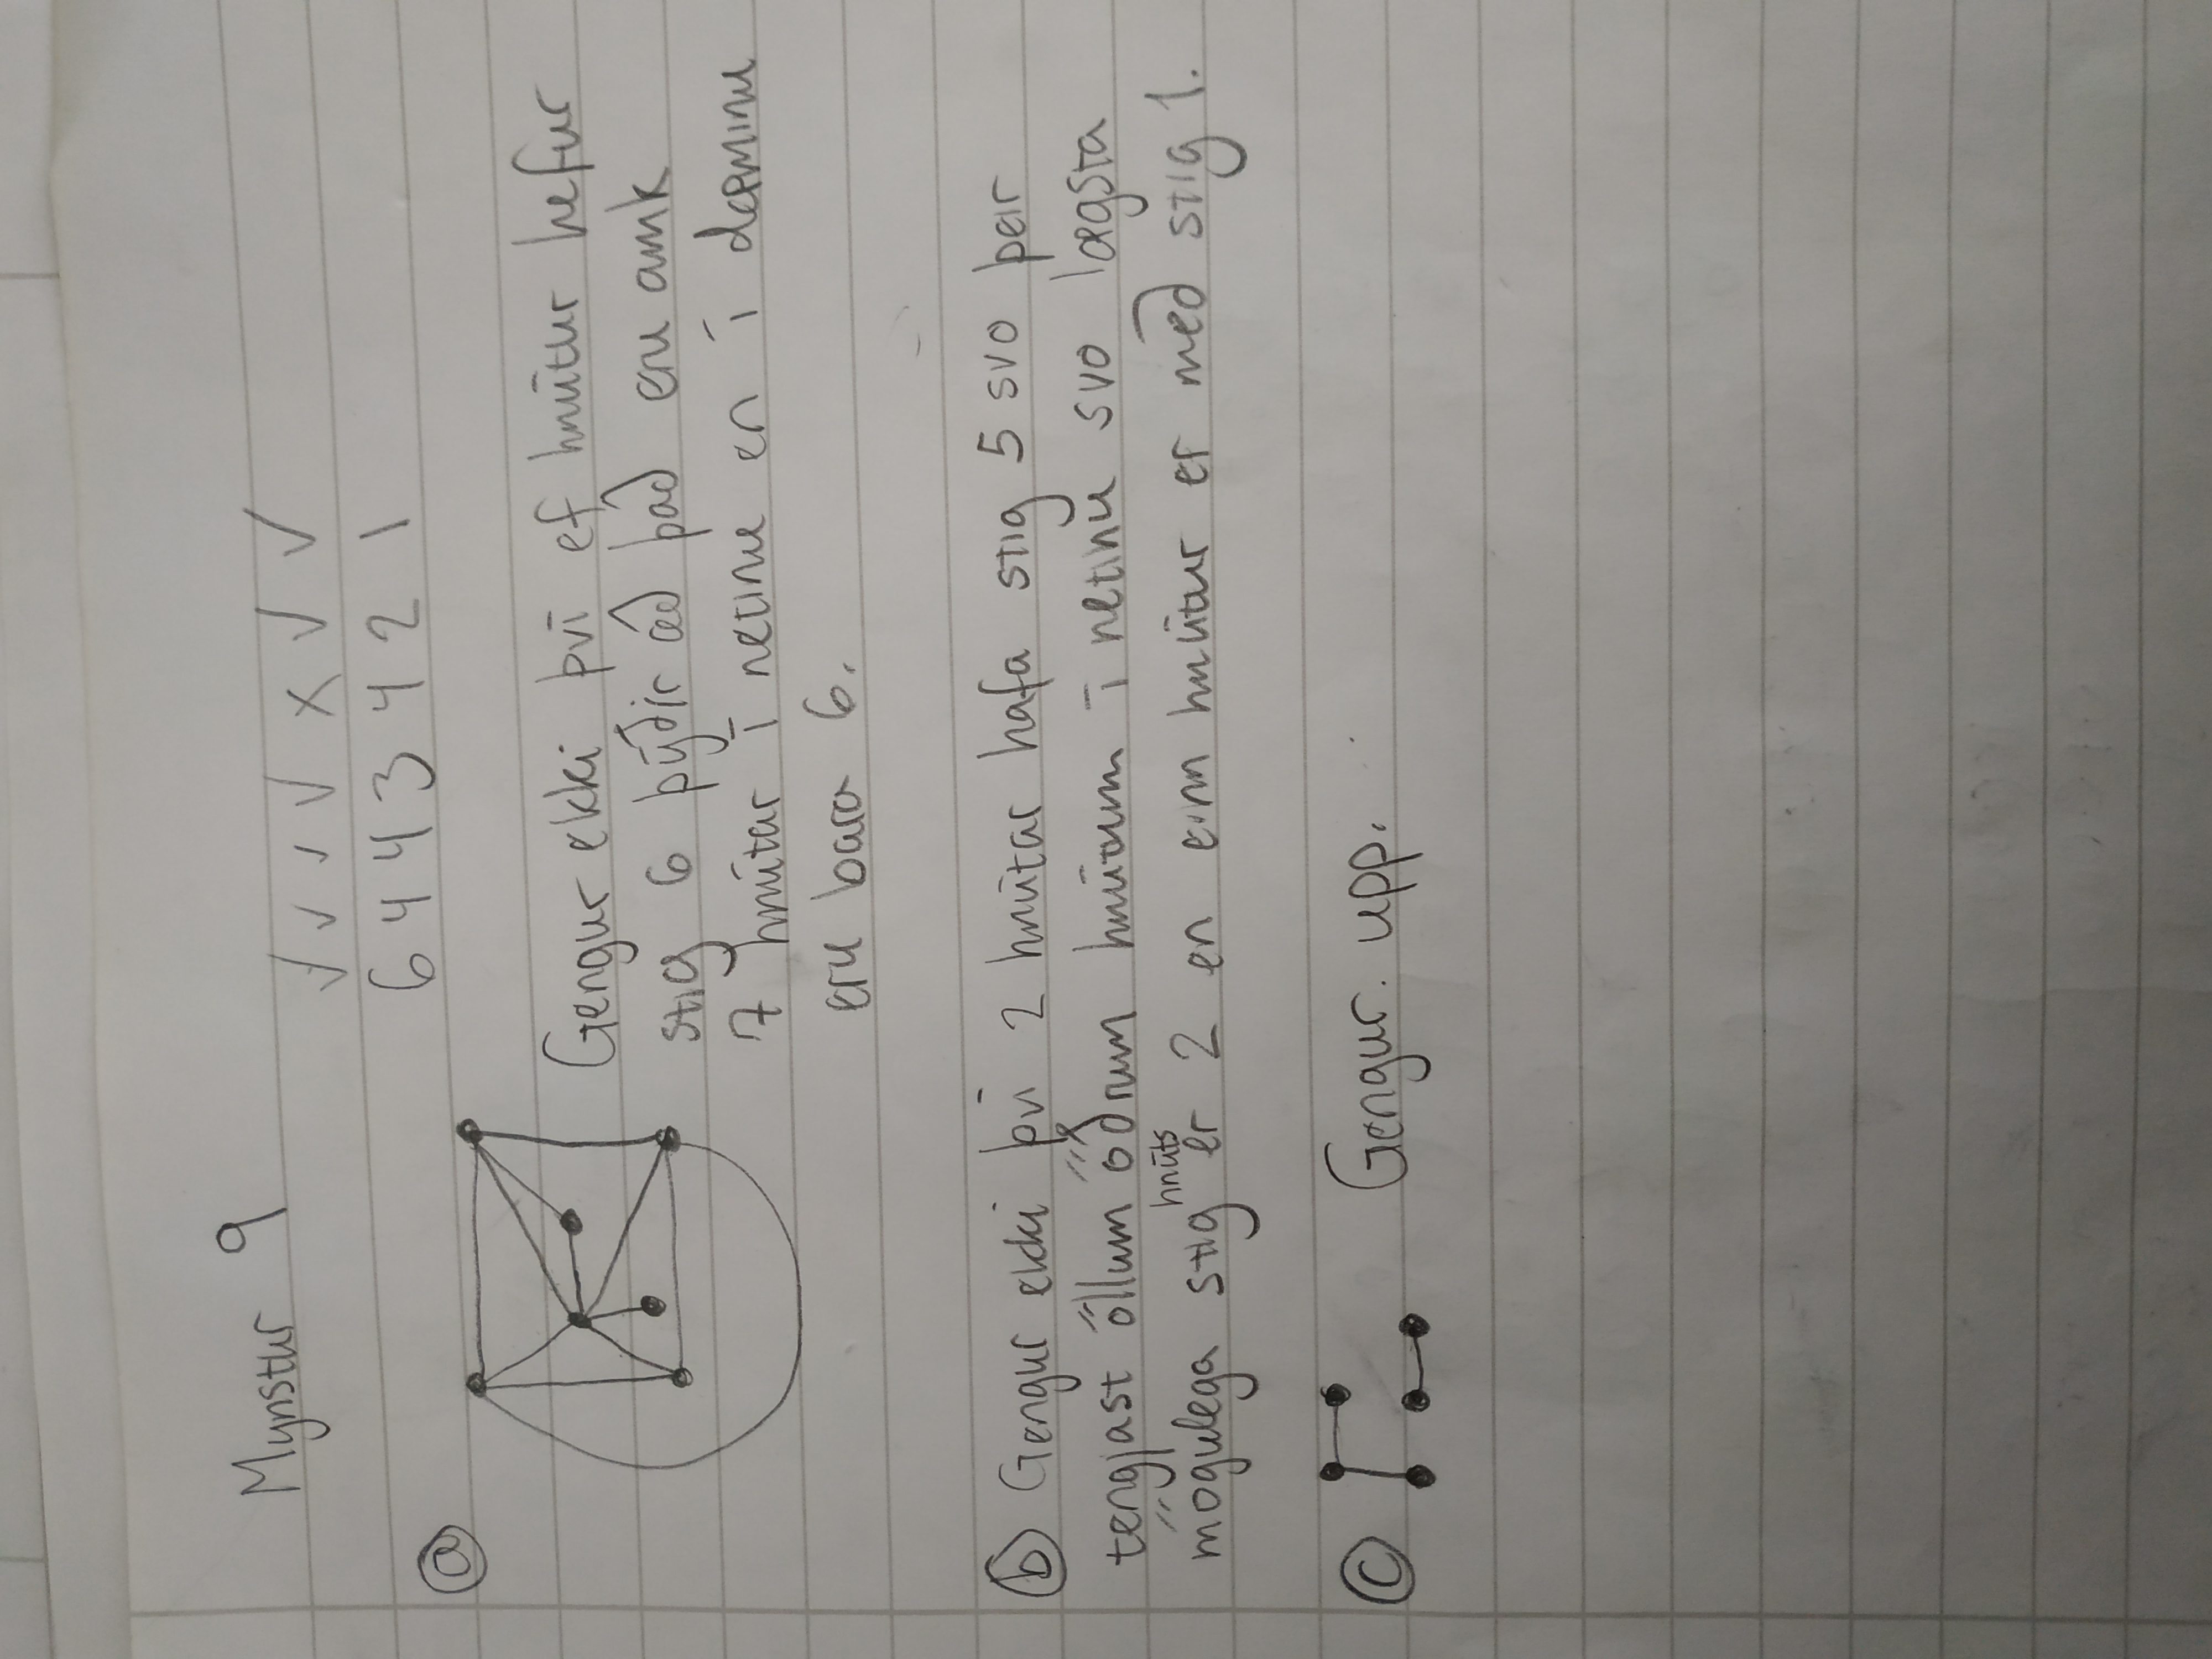 Mynstur 9
✓ ✓ ✓ ✓ x ✓ ✓
6 4 4 3 4 2 1
ⓐ
Gengur ekki því ef hnútur hefur
stig 6 þýðir að það eru amk
7 hnútar í netinu en í dæminu
eru bara 6.
ⓑ Gengur ekki því 2 hnútar hafa stig 5 svo þeir
tengjast öllum öðrum hnútum í netinu svo lægsta
mögulega stig hnúts er 2 en einn hnútur er með stig 1.
ⓒ Gengur upp.